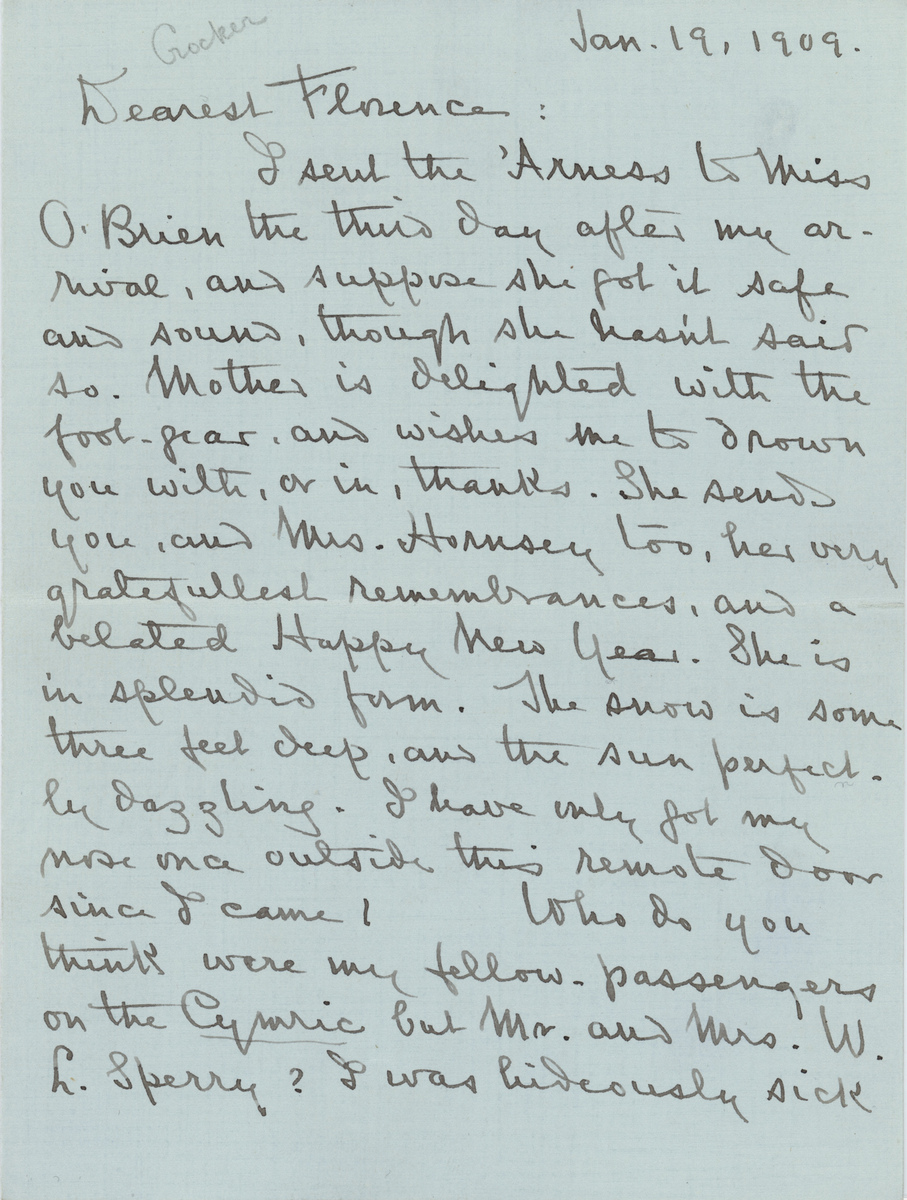 Crocker
Jan. 19, 1909.
Dearest Florence:
I sent the 'Arness to Miss
O'Brien the third day after my ar-
rival, and suppose she got it safe
and sound, though she hasn't said
so. Mother is delighted with the
foot-gear, and wishes me to drown
you with, or in, thanks. She sends
you, and Mrs. Hornsey too, her very
gratefullest remembrances, and a
belated Happy New Year. She is
in splendid form. The snow is some
three feet deep, and the sun perfect-
ly dazzling. I have only got my
nose once outside this remote door
since I came! Who do you
think were my fellow-passengers
on the Cymric but Mr. and Mrs. W.
L. Sperry? I was hideously sick